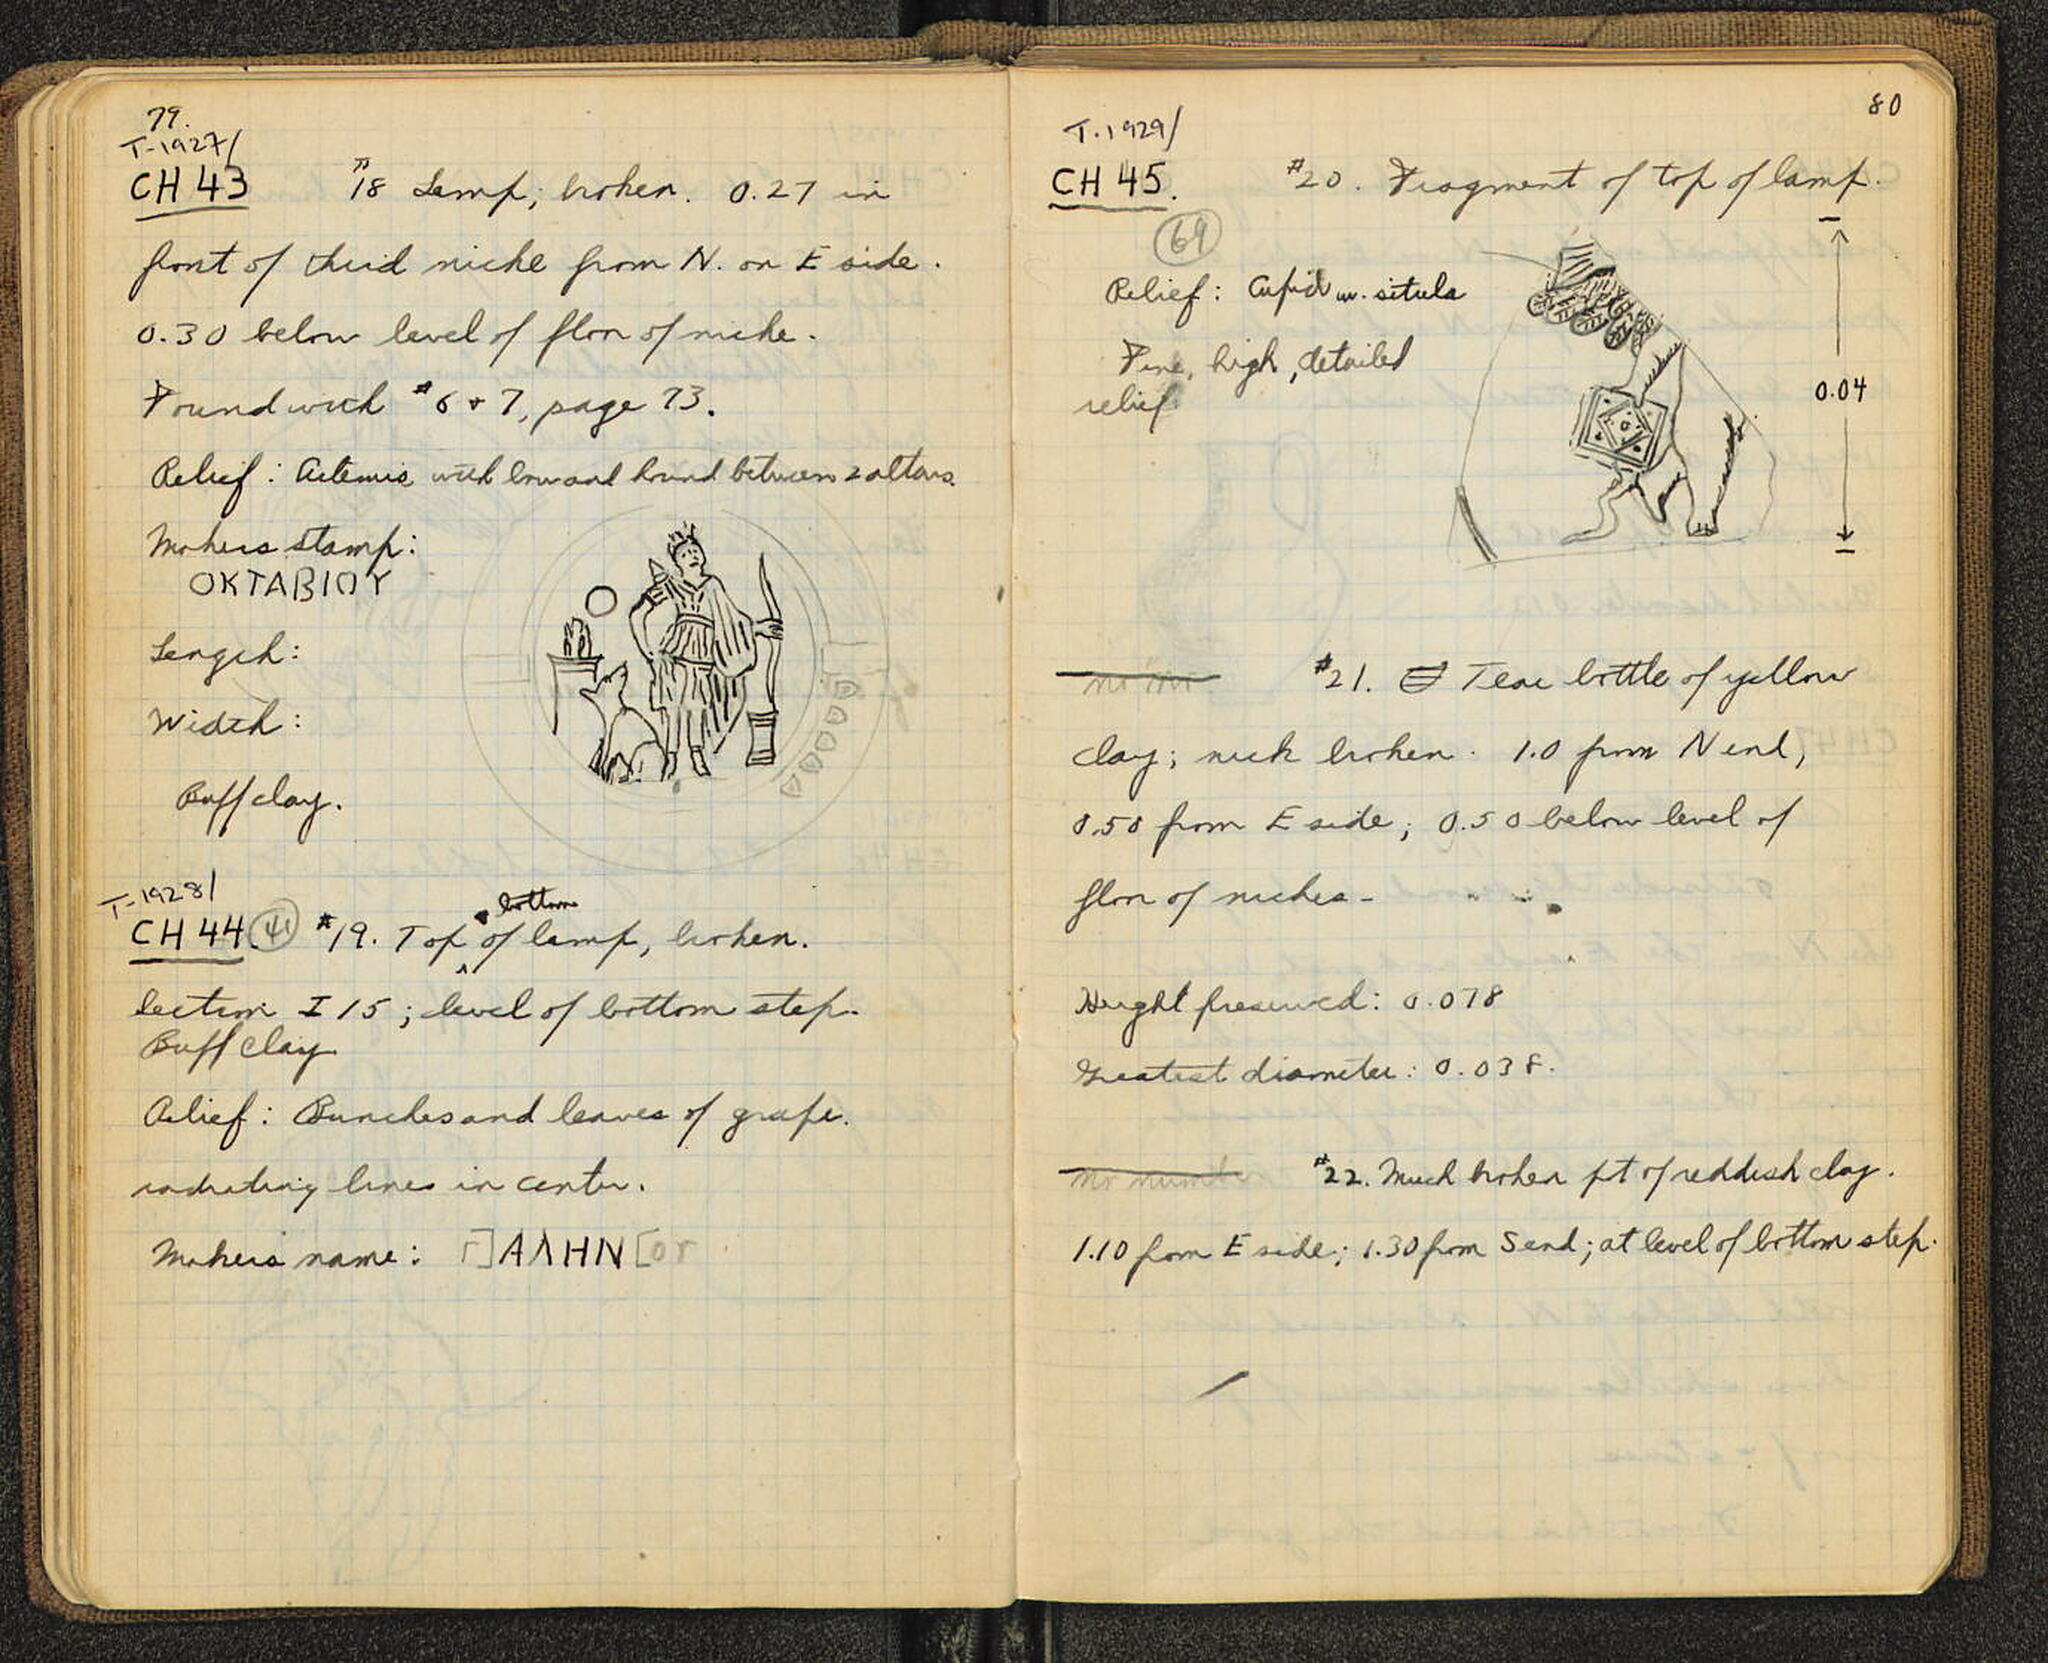 79.
T-1927/
CH 43 #18 Lamp; broken. 0.27 in
front of third niche from N. on E side.
0.30 below level of floor of niche.
Found with #6 + 7, page 73.
Relief: Artemis with bow and hound between 2 altars.
Makers stamp:
ΟΚΤΑΒΙΟΥ
Length:
Width:
Buff clay.
T-1928/
bottom
CH 44. 41 #19. Top of lamp, broken.
Section I 15; level of bottom step.
Buff clay
Relief: Bunches and leaves of grape.
radiating lines in center.
Makers name: Γ]ΑΛΗΝ[ΟΥ
80
T-1929/
CH 45. #20. Fragment of top of lamp.
69
Relief: Cupid w. situla
Fine, high, detailed
relief
0.04
no inv #21. Tear bottle of yellow
clay; neck broken. 1.0 from N end,
0.50 from E side; 0.50 below level of
floor of niches-
Height preserved: 0.078
Greatest diameter: 0.038.
no number #22. Much broken pt of reddish clay.
1.10 from E side; 1.30 from S end; at level of bottom step.